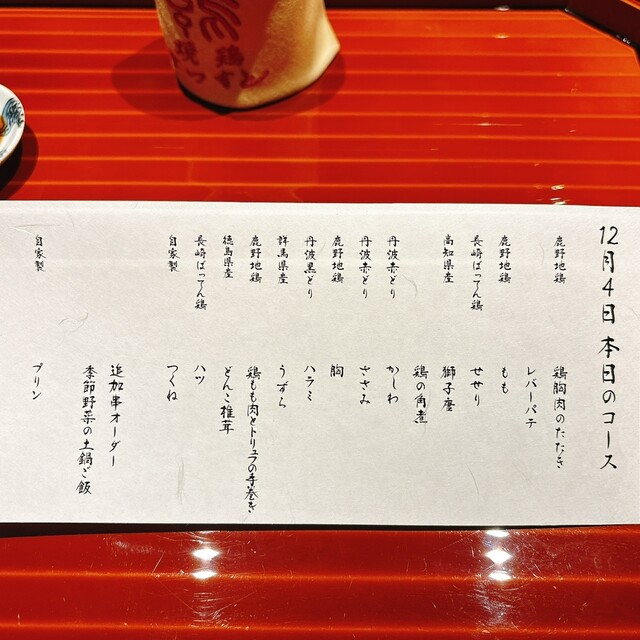 12月4日 本日のコース
鹿野地鶏 鶏胸肉のたたき
レバーパテ
鹿野地鶏 もも
長崎ばってん鶏 せせり
高知県産 獅子唐
鶏の角煮
丹波赤どり かしわ
丹波赤どり ささみ
鹿野地鶏 胸
丹波黒どり ハラミ
群馬県産 うずら
鹿野地鶏 鶏もも肉とトリュフの手巻き
徳島県産 どんこ椎茸
長崎ばってん鶏 ハツ
自家製 つくね
追加串オーダー
季節野菜の土鍋ご飯
自家製 プリン